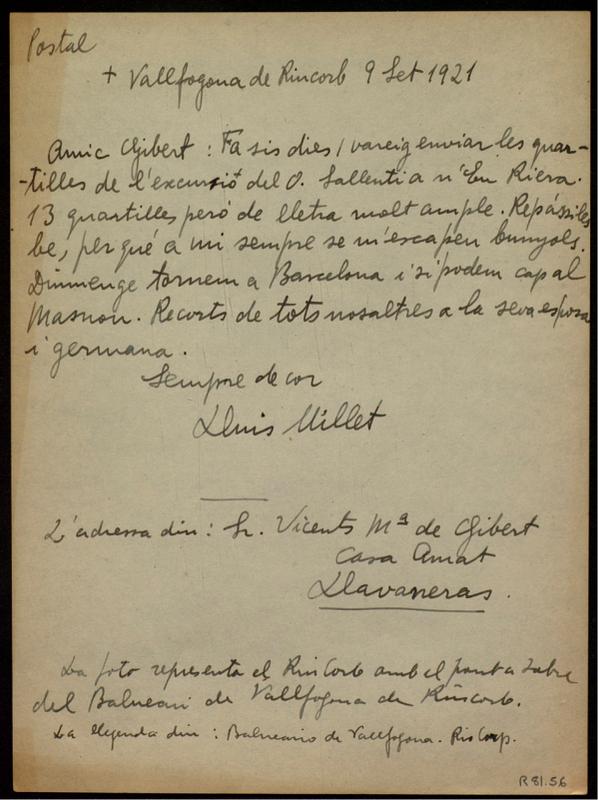 Postal
+ Vallfogona de Rincorb 9 Set 1921
Amic Gibert : Fa sis dies vareig enviar les quar-
-tilles de l'excursió del O. Sallent a n'En Riera.
13 quartilles però de lletra molt ample. Repássiles
be, perqué a mi sempre se m'escapen bunyols.
Diumenge tornem a Barcelona i si podem cap al
Masnou. Recorts de tots nosaltres a la seva esposa
i germana.
Sempre de cor
Lluis Millet
L'adressa diu : Sr. Vicents Mª de Gibert
Casa Amat
Llavaneras.
La foto representa el Rin Corb amb el pont a sobre
del Balneari de Vallfogona de Rincorb.
La llegenda diu : Balneario de Vallfogona. Rio Corp.
R 81.56